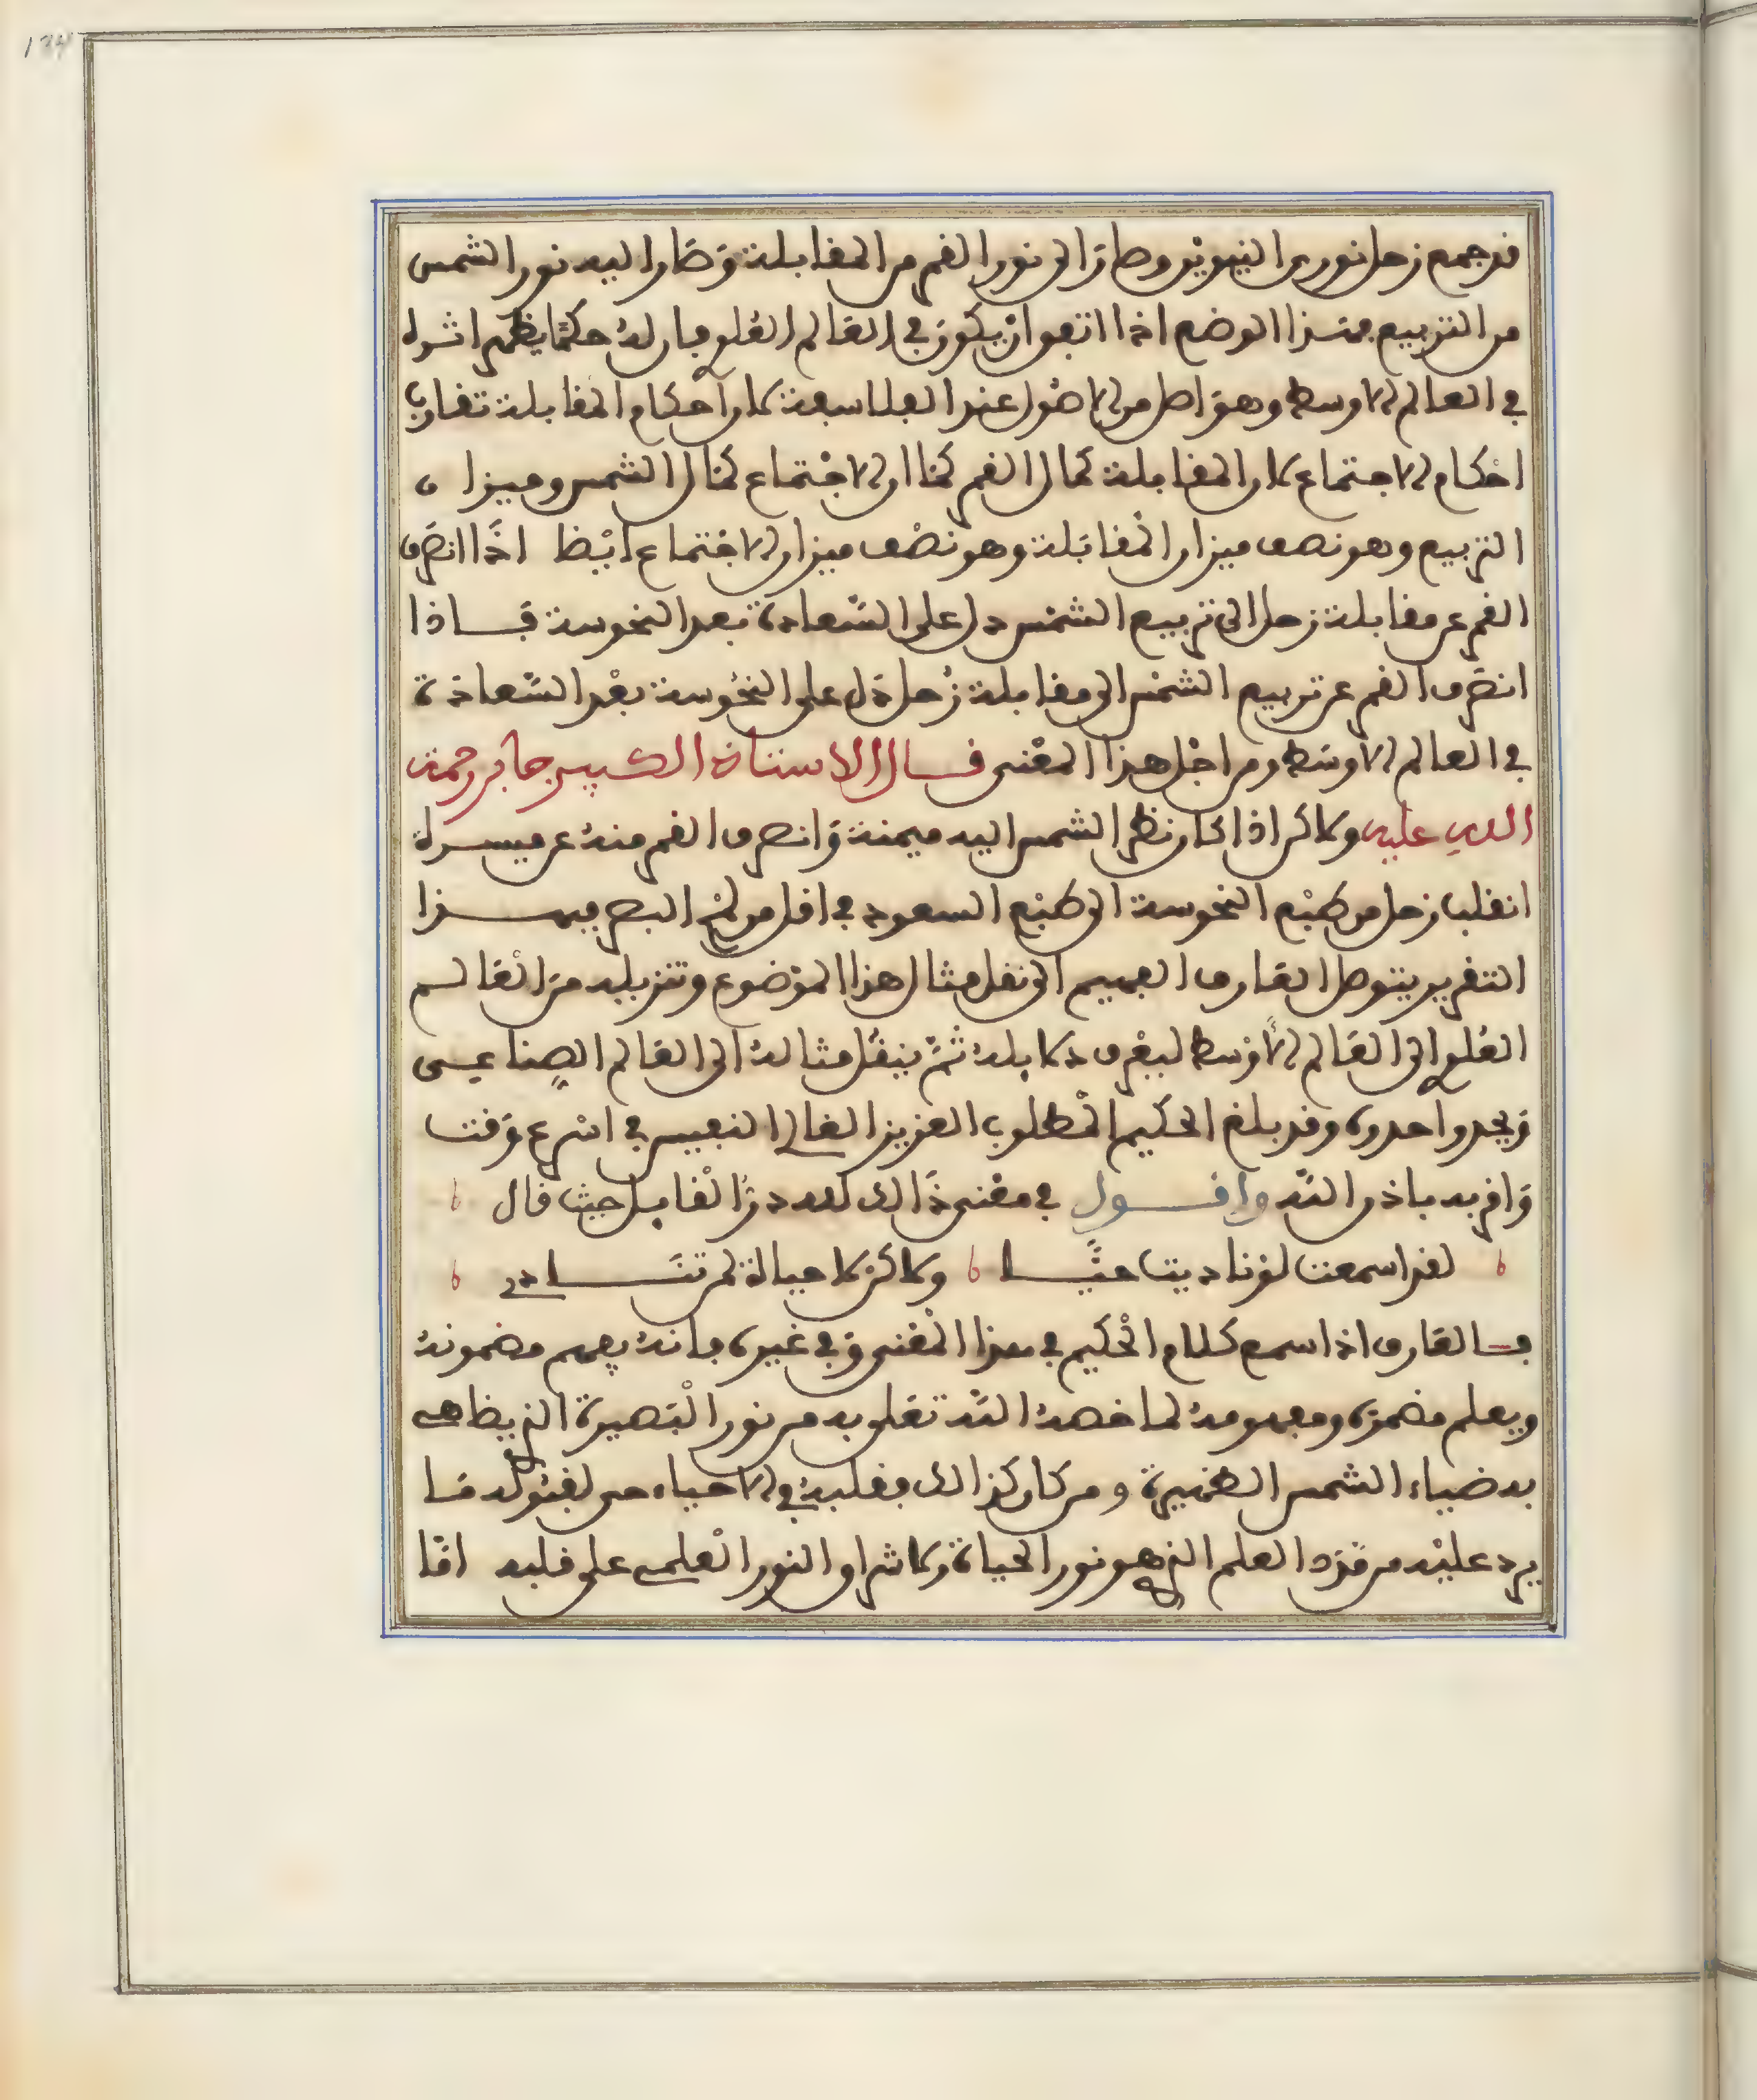 قد جمع زحل نورين النيرين وصار الى نور القمر من المقابلة وصار اليه نور الشمس
من التربيع بهذا الوضع اذا اتفق ان يكون في العالم العلوي فان له حكما يظهر اثره
في العالم الاوسط وهو اصل من الاصول عند الفلاسفة لان احكام المقابلة تقارب
احكام الاجتماع لان المقابلة كمال القمر كما ان الاجتماع كمال الشمس وميزان
التربيع وهو نصف ميزان المقابلة وهو نصف ميزان الاجتماع ايضا اذا انصرف
القمر عن مقابلة زحل الى تربيع الشمس دل على السعادة بعد النحوسة فاذا
انصرف القمر عن تربيع الشمس الى مقابلة زحل دل على النحوسة بعد السعادة
في العالم الاوسط ومن اجل هذا المعنى قال الاستاذ الكبير جابر رحمة
الله عليه ولاكن اذا كان نظر الشمس اليه ميمنة وانصرف القمر منه عن ميسرة
انقلب زحل من طبع النحوسة الى طبع السعود في اقل من لمح البصر فبهذا
التقرير يتوصل العارف الفهيم الى نقل مثال هذا الموضوع وتنزيله من العالم
العلوي الى العالم الاوسط ليعرف دلايله ثم ينقل مثاله الى العالم الصناعي
ويحد واحدوه وقد بلغ الحكيم المطلوب العزيز الغالي النفيس في اسرع وقت
واقربه باذن الله واقول في معنى ذالك لله در القايل حيث قال
لقد اسمعت لو ناديت حيا ولاكن لا حياة لمن تنادي
فالعارف اذا سمع كلام الحكيم في هذا المعنى وفي غيره فانه يفهم مضمونه
ويعلم مضمره ومفهومه لما خصه الله تعلى به من نور البصيرة الذي يظاهي
به ضياء الشمس المنيرة ومن كان كذالك فقلبه في الاحياء حي لقبوله ما
يرد عليه من مدد العلم الذي هو نور الحياة ولاشراق النور العلمي على قلبه اما